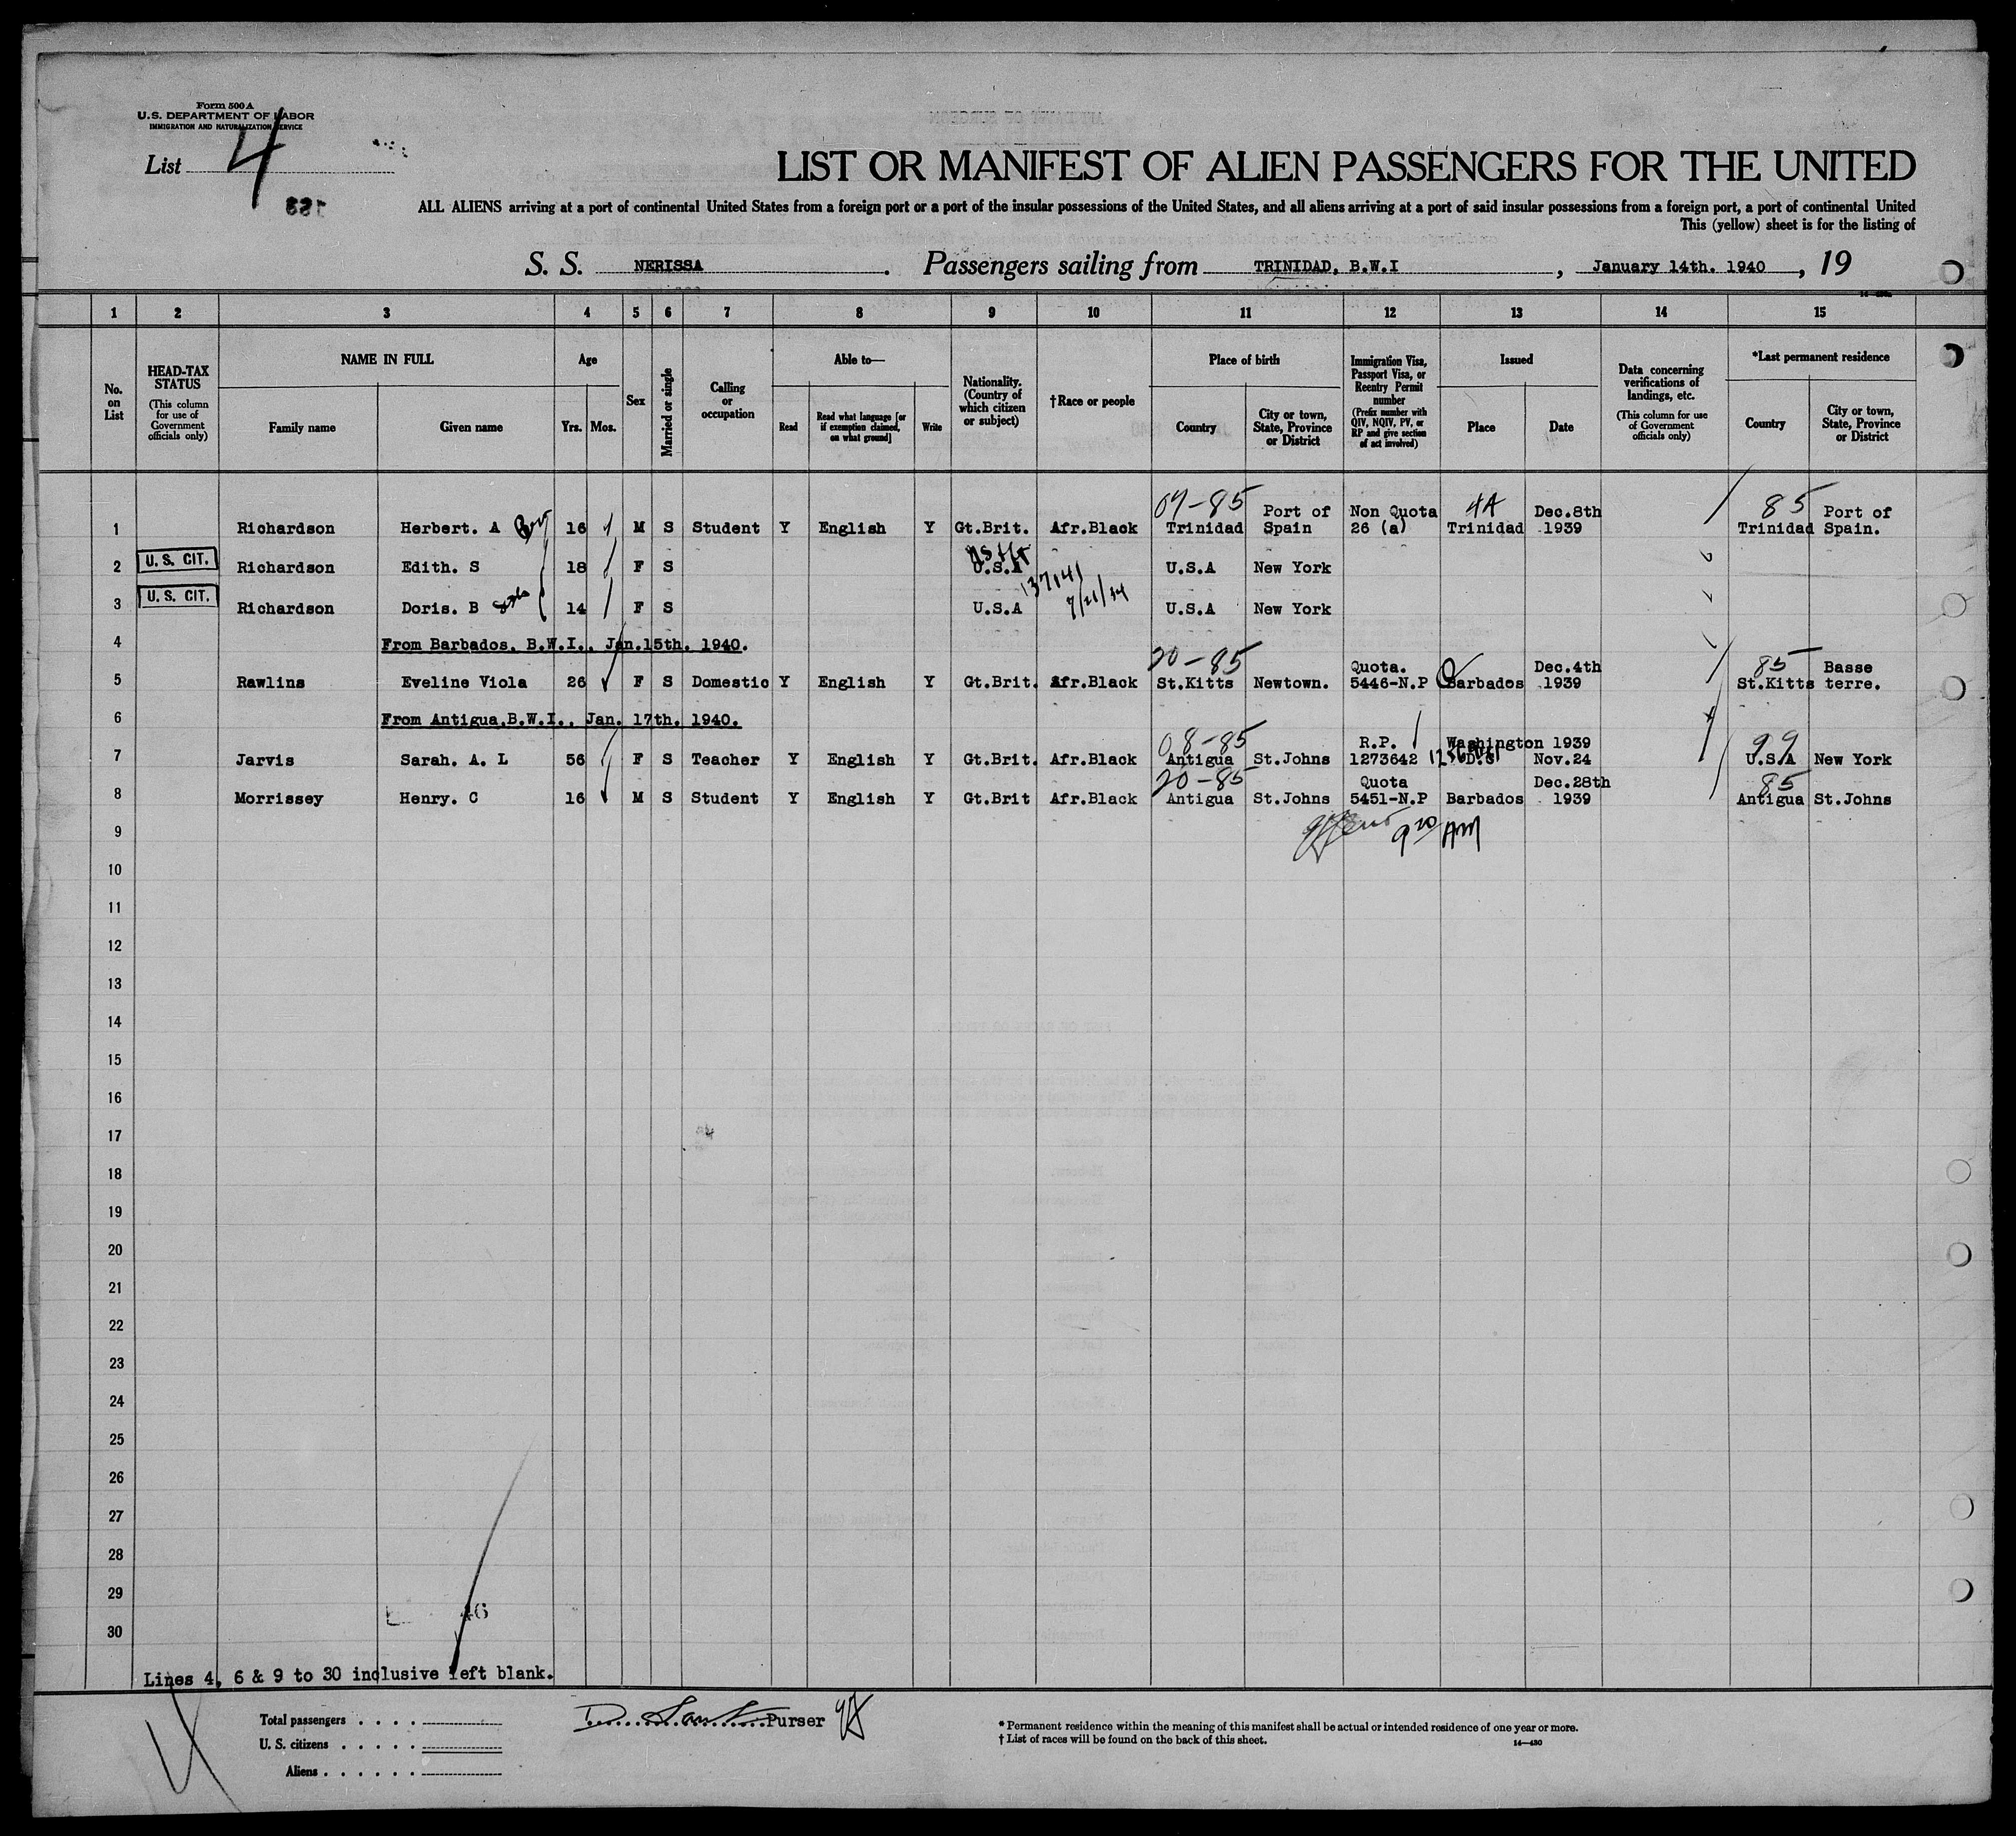 Form 500 A
U.S. DEPARTMENT OF LABOR
IMMIGRATION AND NATURALIZATION SERVICE
List 4
LIST OR MANIFEST OF ALIEN PASSENGERS FOR THE UNITED
ALL ALIENS arriving at a port of continental United States from a foreign port or a port of the insular possessions of the United States, and all aliens arriving at a port of said insular possessions from a foreign port, a port of continental United
This (yellow) sheet is for the listing of
S. S. NERISSA. Passengers sailing from TRINIDAD, B.W.I, January 14th. 1940, 19
1 2 3 4 5 6 7 8 9 10 11 12 13 14 15
No. on List
HEAD-TAX STATUS (This column for use of Government officials only)
NAME IN FULL Family name Given name
Age Yrs. Mos.
Sex
Married or single
Calling or occupation
Able to— Read Read what language [or if exemption claimed, on what ground] Write
Nationality. (Country of which citizen or subject)
†Race or people
Place of birth Country City or town, State, Province or District
Immigration Visa, Passport Visa, or Reentry Permit number (Prefix number with QIV, NQIV, PV, or RP and give section of act involved)
Issued Place Date
Data concerning verifications of landings, etc. (This column for use of Government officials only)
*Last permanent residence Country City or town, State, Province or District
07-85 4A 85
1 Richardson Herbert. A 16 M S Student Y English Y Gt.Brit. Afr.Black Trinidad Port of Spain Non Quota 26 (a) Trinidad Dec.8th 1939 Trinidad Port of Spain.
2 U. S. CIT. Richardson Edith. S 18 F S U.S.A U.S.A New York
137141
7/21/34
3 U. S. CIT. Richardson Doris. B 14 F S U.S.A U.S.A New York
4 From Barbados, B.W.I., Jan.15th. 1940.
20-85 85
5 Rawlins Eveline Viola 26 F S Domestic Y English Y Gt.Brit. Afr.Black St.Kitts Newtown. Quota. 5446-N.P Barbados Dec.4th 1939 St.Kitts Basse terre.
6 From Antigua,B.W.I., Jan. 17th. 1940.
08-85 99
7 Jarvis Sarah. A. L 56 F S Teacher Y English Y Gt.Brit. Afr.Black Antigua St.Johns R.P. 1273642 Washington D.C 1939 Nov.24 U.S.A New York
20-85 85
8 Morrissey Henry. C 16 M S Student Y English Y Gt.Brit Afr.Black Antigua St.Johns Quota 5451-N.P Barbados Dec.28th 1939 Antigua St.Johns
9 9 20 AM
10
11
12
13
14
15
16
17
18
19
20
21
22
23
24
25
26
27
28
29
46
30
Lines 4, 6 & 9 to 30 inclusive left blank.
Total passengers . . . .
U. S. citizens . . . . .
Aliens . . . . . .
Purser
* Permanent residence within the meaning of this manifest shall be actual or intended residence of one year or more.
† List of races will be found on the back of this sheet.
14—430